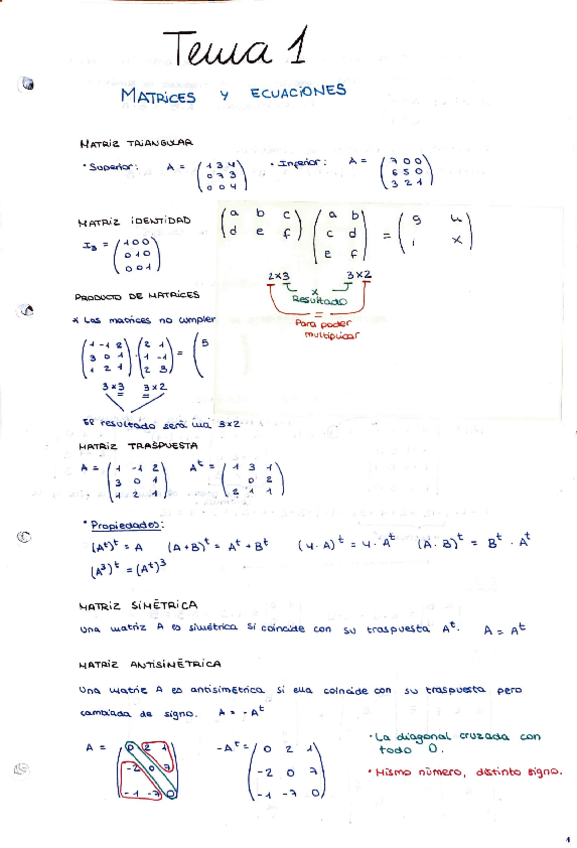 Tema 1
MATRICES Y ECUACIONES
MATRIZ TRIANGULAR
• Superior: A = (1 3 4 • Inferior: A = (7 0 0
0 7 3 6 5 0
0 0 4) 3 2 1)
MATRIZ IDENTIDAD
I3 = (1 0 0
0 1 0
0 0 1)
(a b c (a b (g
d e f) c d =
e f) x)
2x3 3x2
x
Resultado
=
Para poder
multiplicar
PRODUCTO DE MATRICES
* Las matrices no cumplen
(1 -1 2 (2 1 (5
3 0 1 · 1 -1 =
1 2 1) 2 3)
3x3 3x2
El resultado será una 3x2
MATRIZ TRASPUESTA
A = (1 -1 2 At = (1 3 1
3 0 1 0 2
1 2 1) 2 1 1)
• Propiedades:
(At)t = A (A+B)t = At + Bt (4·A)t = 4·At (A·B)t = Bt · At
(A3)t = (At)3
MATRIZ SIMÉTRICA
Una matriz A es simétrica si coincide con su traspuesta At. A = At
MATRIZ ANTISIMÉTRICA
Una matriz A es antisimétrica si ella coincide con su traspuesta pero
cambiada de signo. A = -At
A = (0 2 1 -At = (0 2 1
-2 0 7 -2 0 7
-1 -7 0) -1 -7 0)
• La diagonal cruzada con
todo 0.
• Mismo número, distinto signo.
1